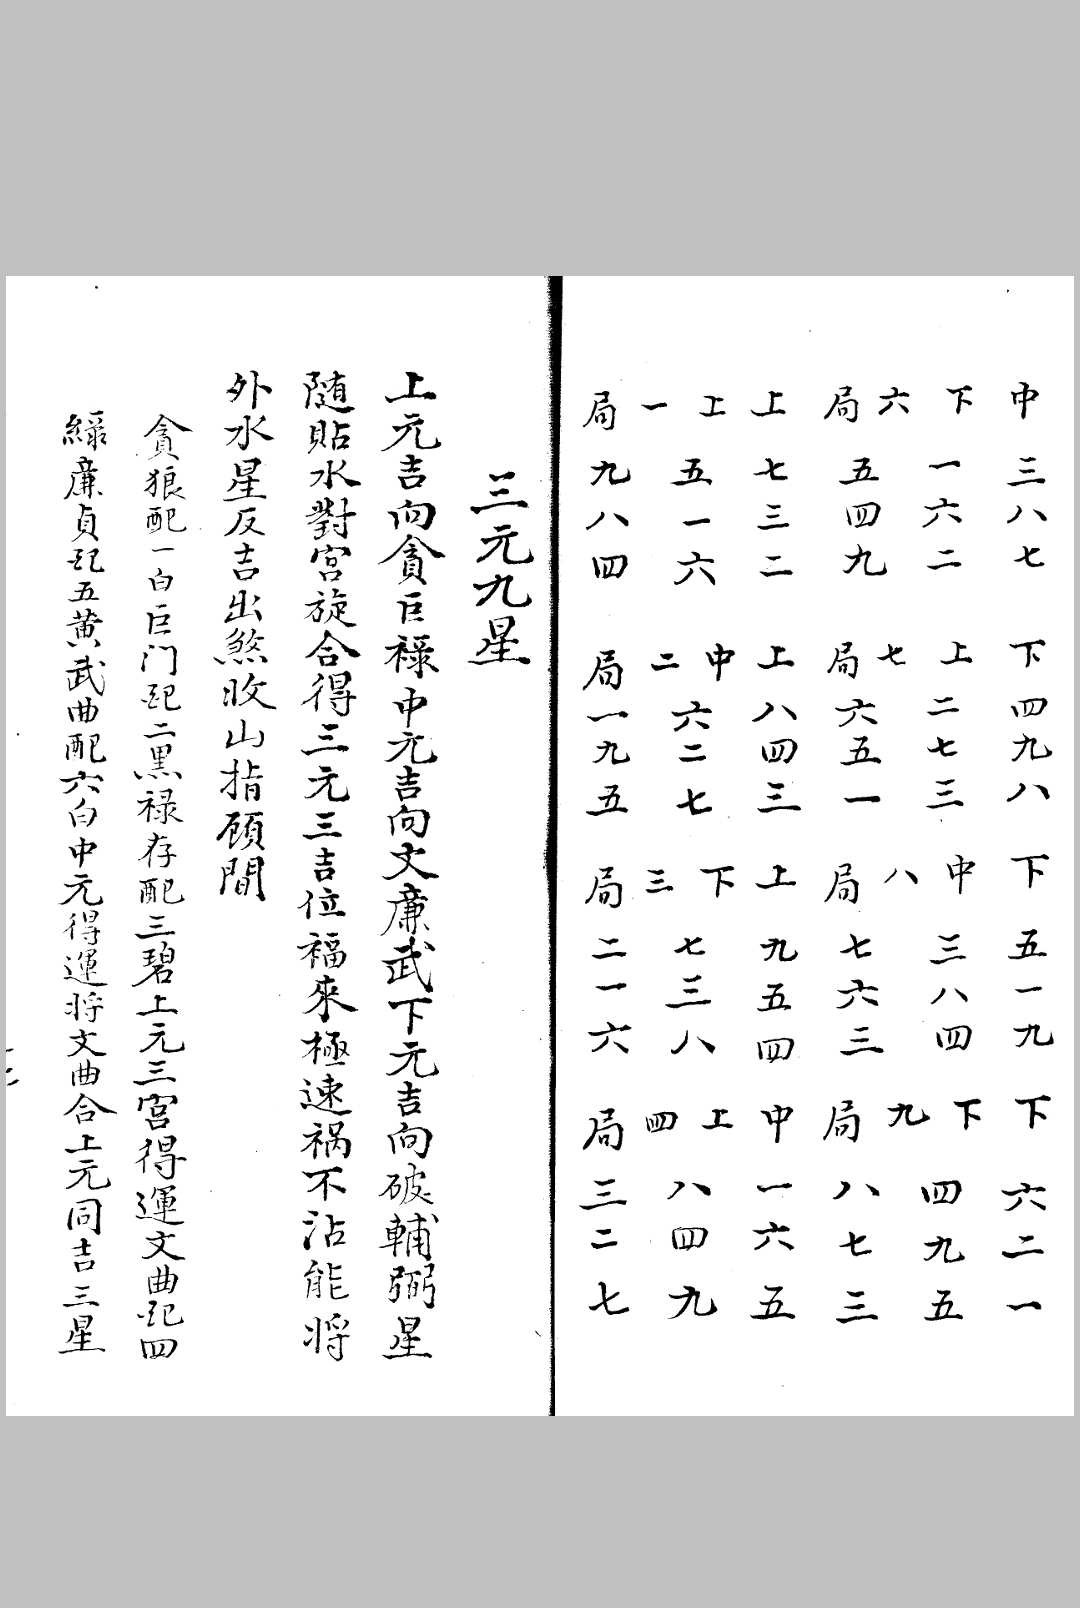 中三八七下四九八下五一九下六二一
下一六二上二七三中三八四下四九五
六局五四九七局六五一八局七六三九局八七三
上七三二上八四三上九五四中一六五
上五一六中六二七下七三八上八四九
一局九八四二局一九五三局二一六四局三二七
三元九星
上元吉向貪巨禄中元吉向文廉武下元吉向破輔弼星
随貼水對宮旋合得三元三吉位福來極速祸不沾能将
外水星反吉出煞收山指顾間
貪狼配一白巨门配二黑禄存配三碧上元三宮得運文曲配四
綠廉貞配五黄武曲配六白中元得運将文曲合上元同吉三星